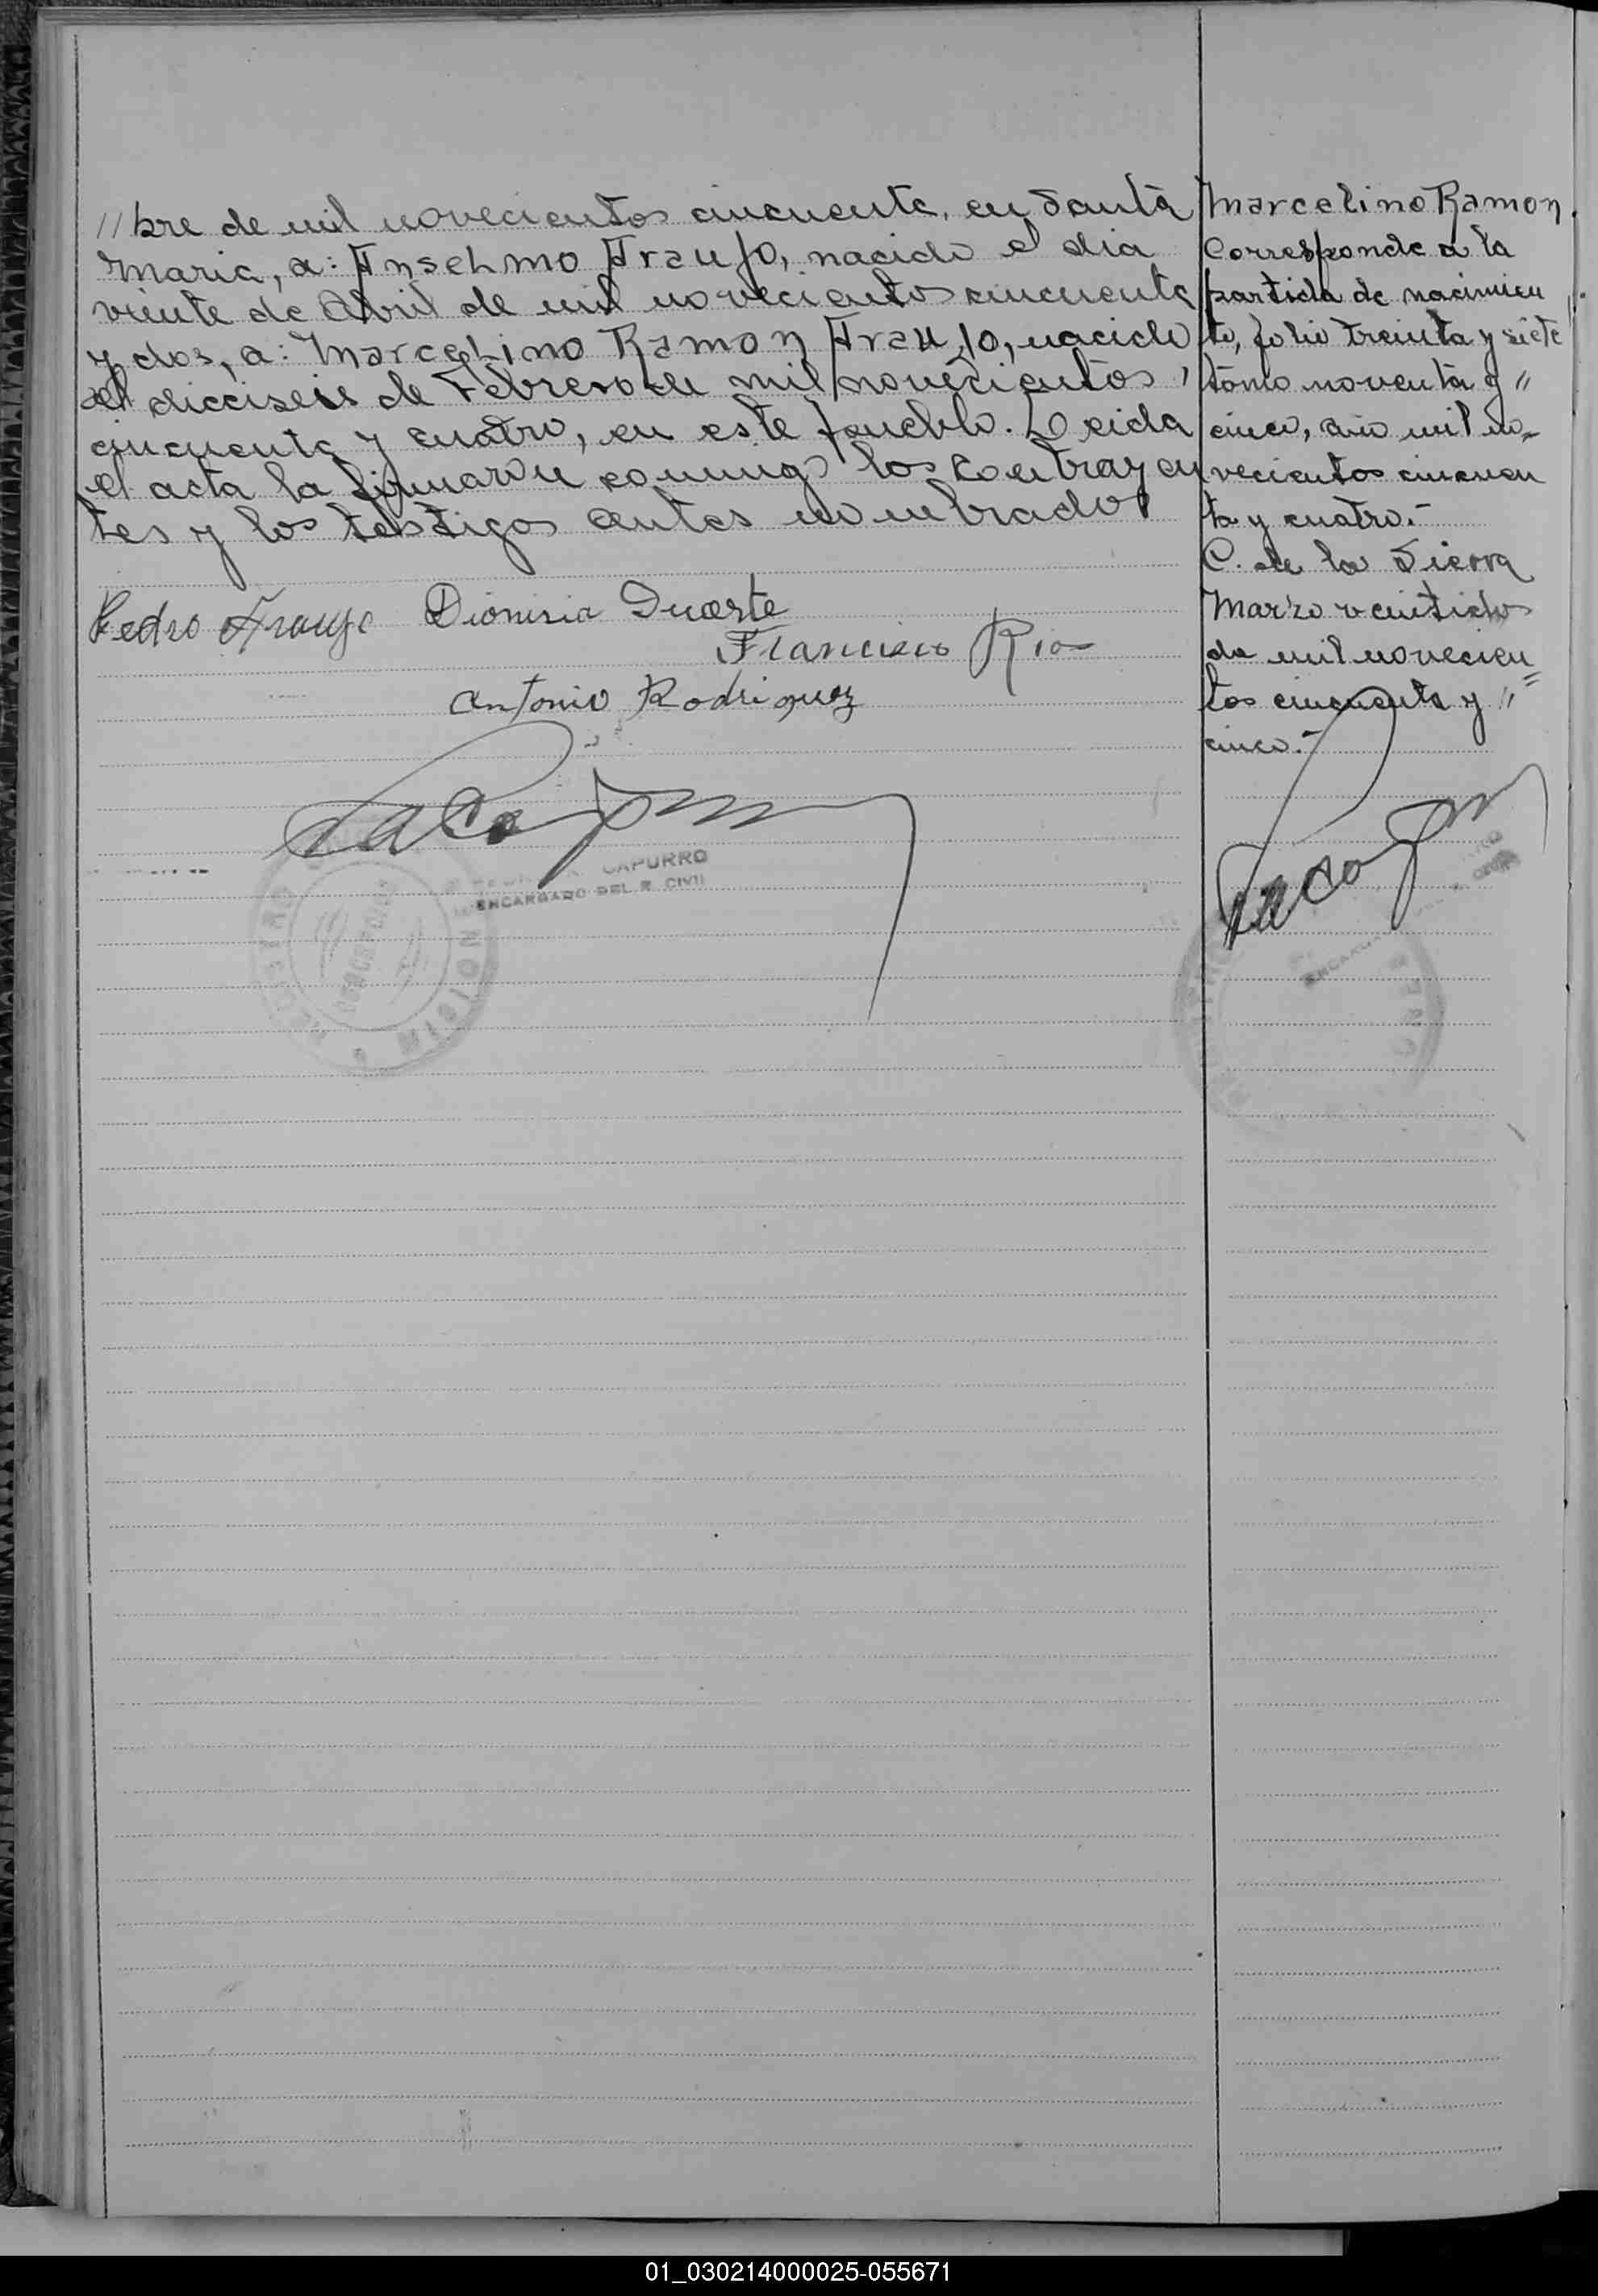 // bre de mil novecientos cincuenta, en Santa
Maria, a: Anselmo Araujo, nacido el dia
veinte de Abril de mil novecientos cincuenta
y dos, a: Marcelino Ramon Araujo, nacido
el dieciseis de Febrero de mil novecientos
cincuenta y cuatro, en este pueblo. Leida
el acta la firmaron conmigo los contrayen
tes y los testigos antes nombrados
Pedro Araujo Dionisia Duarte
Francisco Rios
Antonio Rodriguez
CAPURRO
ENCARGADO DEL R. CIVIL
Marcelino Ramon.
Corresponde a la
partida de nacimien
to, folio treinta y siete
tomo noventa y //
cinco, año mil no-
vecientos cincuen
ta y cuatro.-
C. de la Sierra
Marzo veintidos
de mil novecien=
tos cincuenta y //
cinco.-
01_030214000025-055671